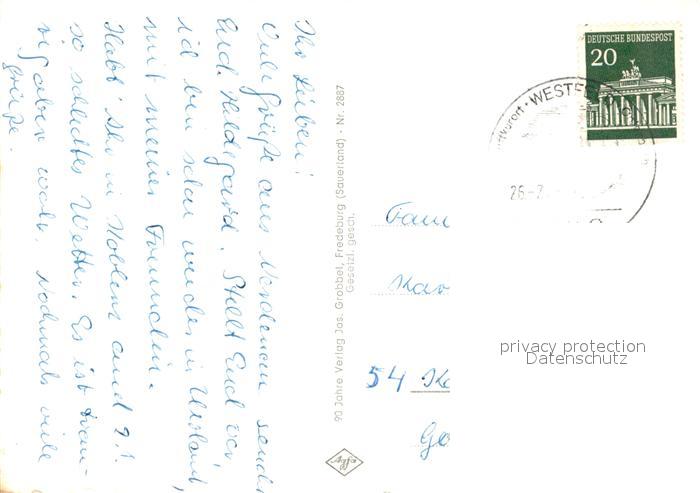 Ihr Lieben!
Viele Grüße aus Nordenau sendet
Euch Hildegard. Stellt Euch vor,
ich bin schon wieder in Urlaub,
mit meiner Freundin.
Habt Ihr in Koblenz auch
so schlechtes Wetter. Es ist trau-
rig aber wahr. Nochmals viele
Grüße.
90 Jahre Verlag Jos. Grobbel, Fredeburg (Sauerland) · Nr. 2887
Gesetzl. gesch.
Agfa
DEUTSCHE BUNDESPOST
20
WESTF
26.-7.
Fam
Kar
54 Ko
Go
privacy protection
Datenschutz